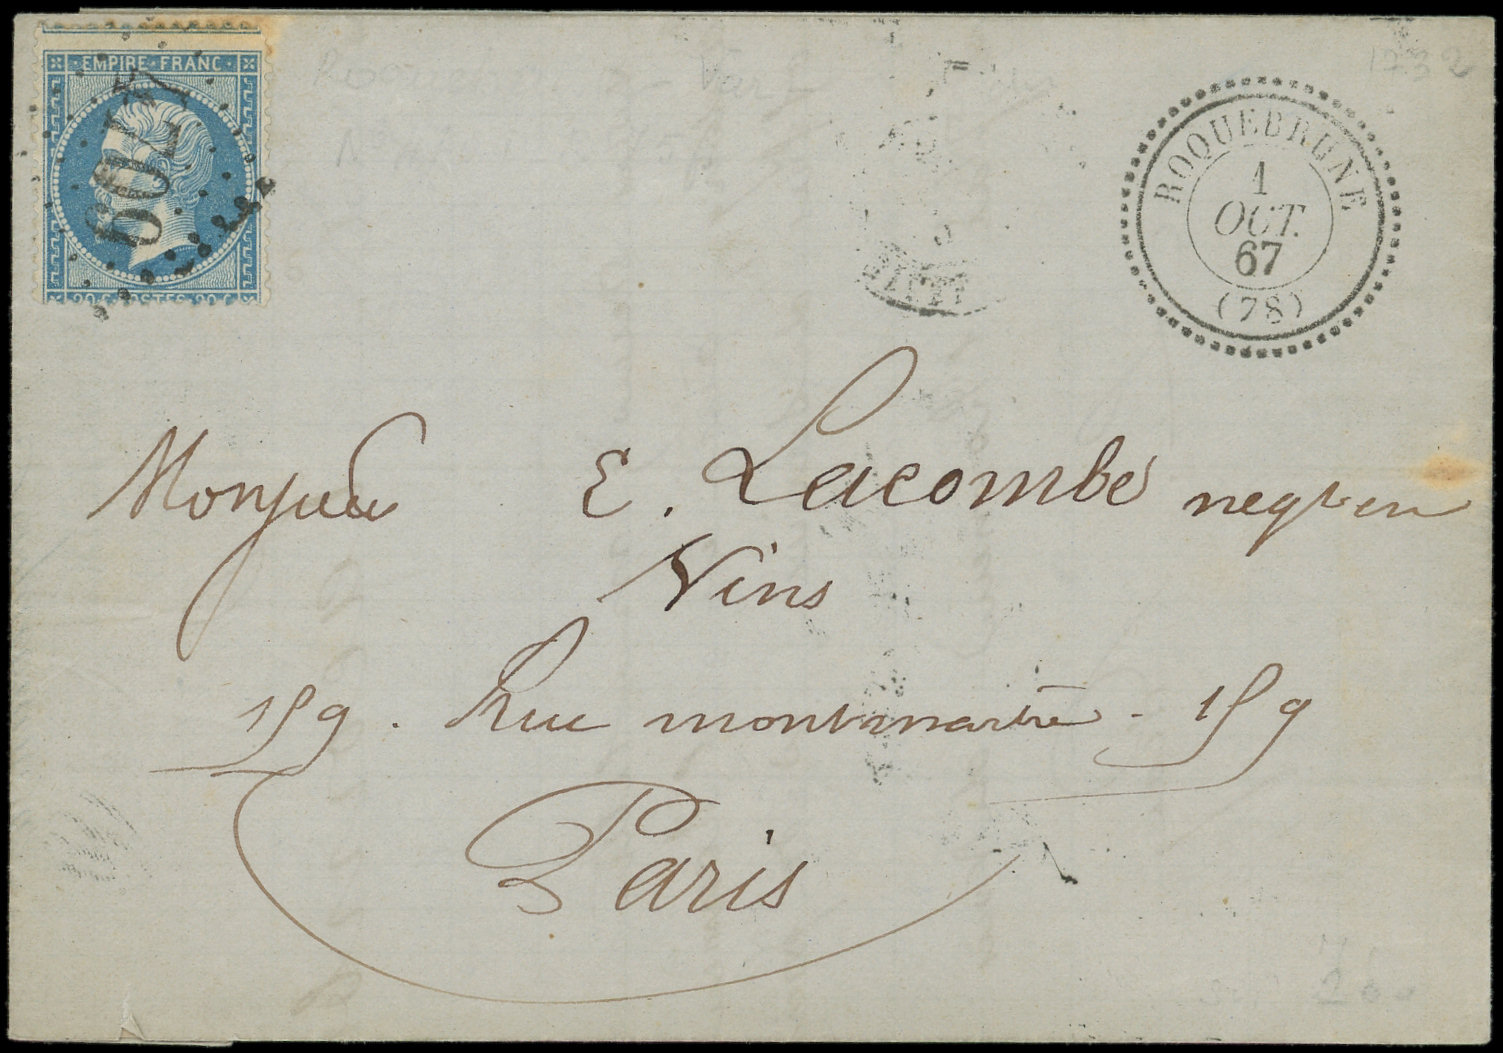 EMPIRE FRANC
20 C POSTES 20 C
ROQUEBRUNE
1
OCT.
67
(78)
Monsieur E. Lacombe negt en
Vins
159. Rue montmartre. 159
Paris